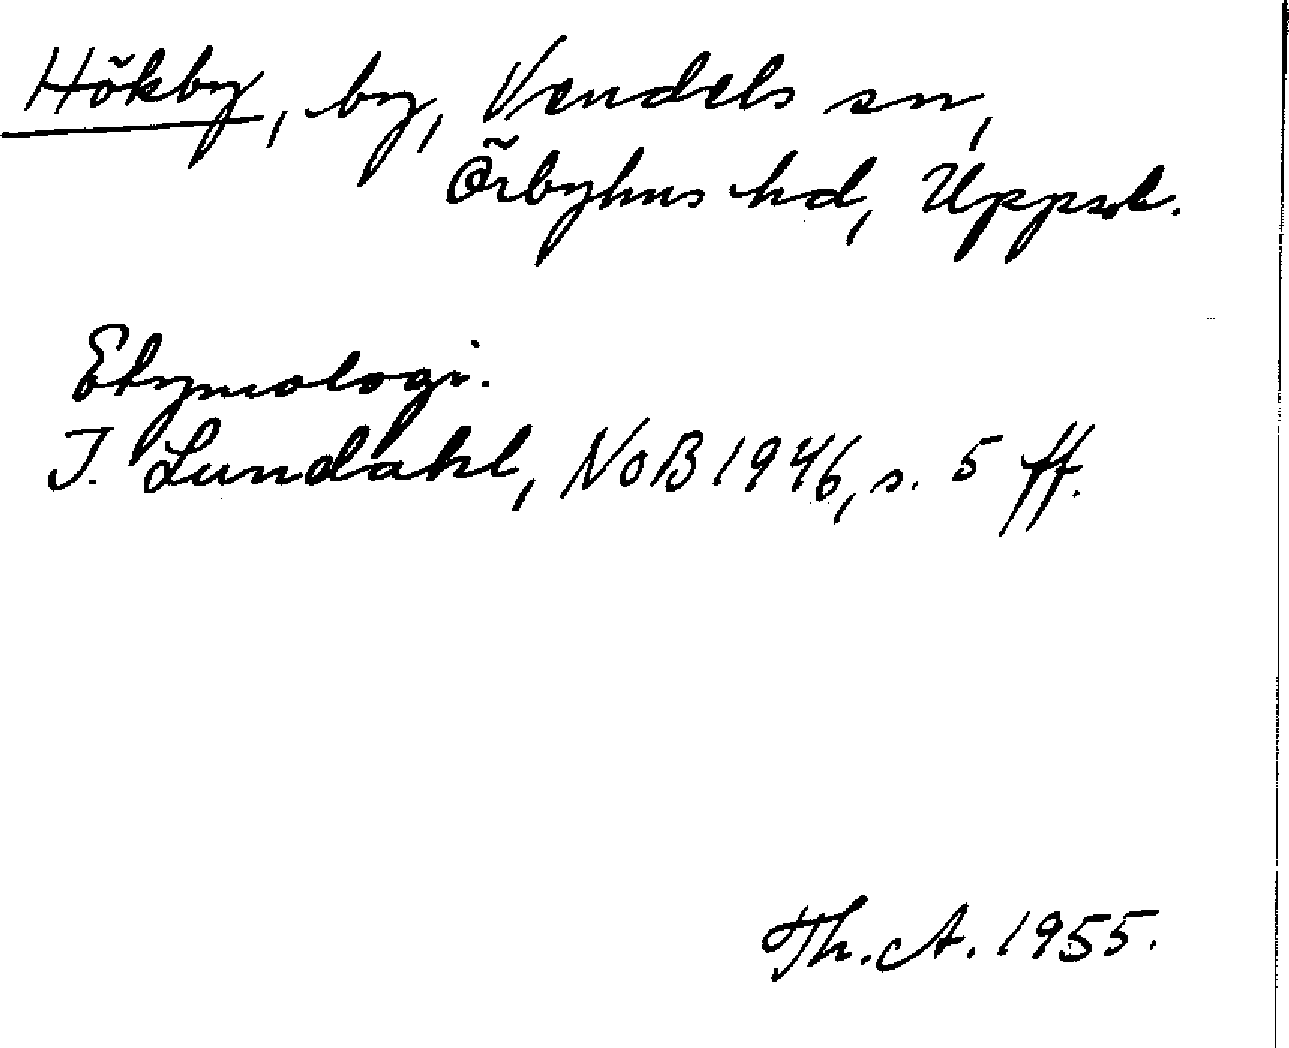 Hökby, by, Vendels sn,
Örbyhus hd, Uppsl.
Etymologi.
I. Lundahl, NoB 1946, s. 5 ff.
Th. A. 1955.